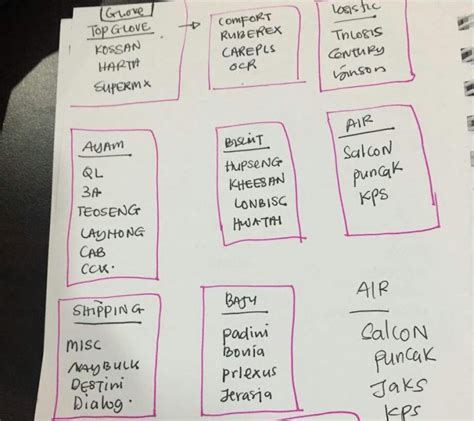 Glove
TOP GLOVE
KOSSAN
HARTA
SUPERMX
COMFORT
RUBEREX
CAREPLS
OCR
Logistic
TNLOGIS
CENTURY
AYAM
QL
3A
TEOSENG
LAYHONG
CAB
CCK.
BISCUIT
HUPSENG
KHEESAN
LONBISC
HWATAI
AIR
SALCON
PUNCAK
KPS
SHIPPING
MISC
NAYBULK
DESTINI
Dialog.
BAJU
padini
Bonia
prlexus
Jerasia
AIR
SALCON
PUNCAK
JAKS
KPS